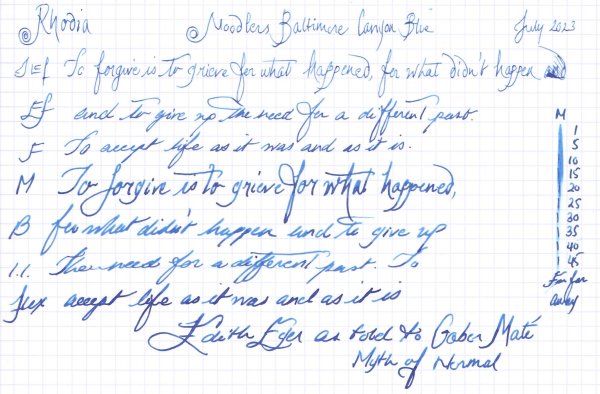 @ Rhodia @ Noodlers Baltimore Canyon Blue July 2023
To forgive is to grieve for what happened, for what didn't happen and
EF and to give up the need for a different past.
F To accept life as it was and as it is.
M To forgive is to grieve for what happened,
B for what didn't happen and to give up
1.1. The need for a different past. To
flex accept life as it was and as it is
Edith Eger as told to Gabor Maté
Myth of Normal
M
1
5
10
15
20
25
30
35
40
45
Far far
away